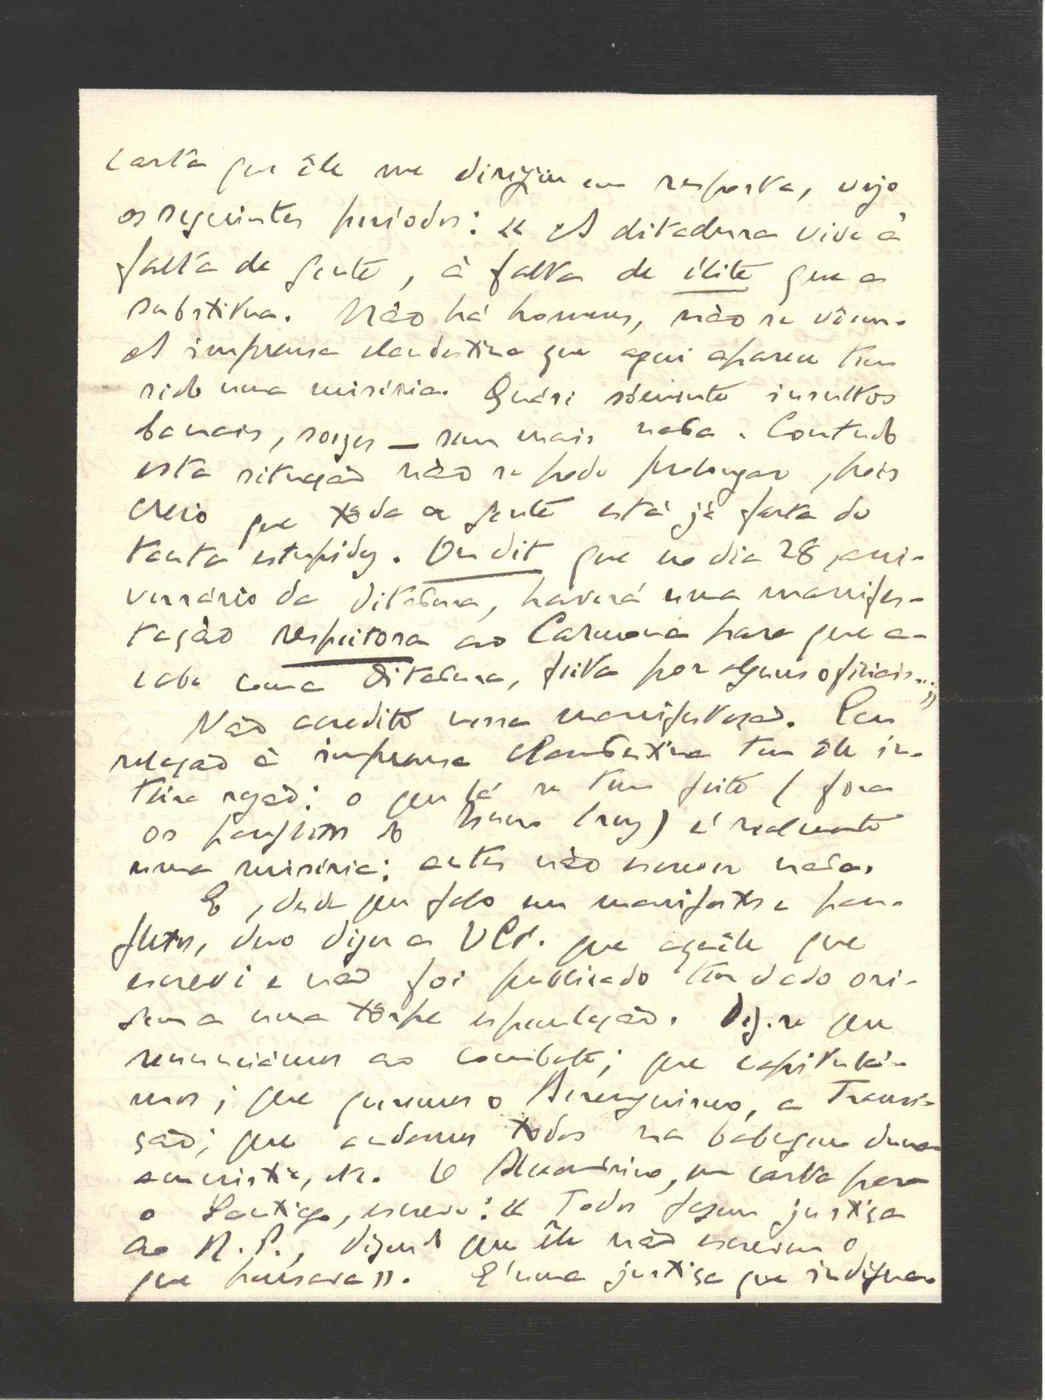 carta que êle me dirigiu em resposta, vejo
os seguintes períodos: « A ditadura vive à
falta de gente, à falta de élite que a
substitua. Não há homens, não se vêem.
A imprensa clandestina que aqui aparece tem
sido uma miséria. Quási sòmente insultos
banais, soezes — sem mais nada. Contudo
esta situação não se pode prolongar, pois
creio que tôda a gente está já farta de
tanta estupidez. On dit que no dia 28, ani-
versário da ditadura, haverá uma manifes-
tação respeitosa ao Carmona para que a-
cabe com a Ditadura, feita por alguns oficiais...»
Não acredito nessa manifestação. Em
relação à imprensa clandestina tem êle in-
teira razão: o que lá se tem feito ( fora
os panfletos do ) é realmente
uma miséria; antes não escrever nada.
E, desde que falo em manifestos e pan-
fletos, devo dizer a V. que aquêle que
escrevi e não foi publicado tem dado ori-
gem a uma tôrpe especulação. Diz-se que
renunciámos ao combate; que capitulá-
mos; que queremos o Berenguismo, a Transi-
ção; que andamos todos na babugem duma
amnistia, etc. O Alexandrino, em carta para
o , escreve: « Todos fazem justiça
ao R. P., dizendo que êle não escreveu o
que pensava ». E' uma justiça que indigna.